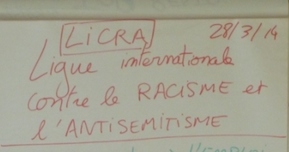 LiCRA 28/3/14
Ligue internationale
contre le RACISME et
l'ANTISEMITISME